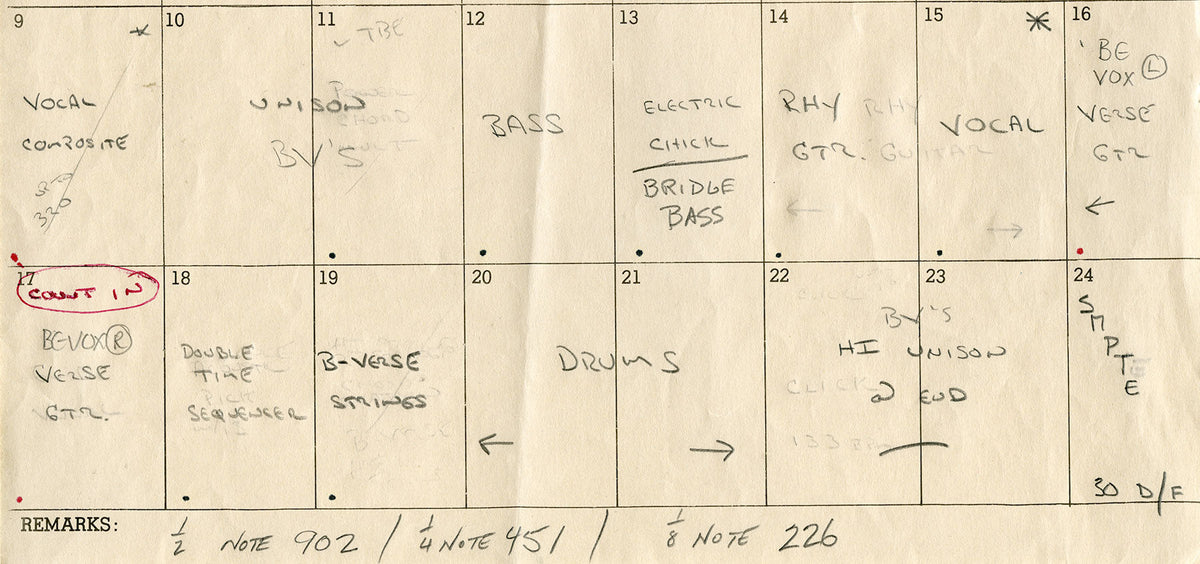 9
VOCAL
COMPOSITE
320
10
11
TBE
UNISON
BV'S
POWER
CHORD
12
BASS
13
ELECTRIC
CHICK
BRIDGE
BASS
14
RHY RHY
GTR. GUITAR
15
VOCAL
16
BE
VOX L
VERSE
GTR
17
COUNT IN
BE VOX R
VERSE
GTR.
18
DOUBLE
TIME
SEQUENCER
19
B-VERSE
STRINGS
20
21
DRUMS
22
23
BV'S
HI UNISON
@ END
CLICK
133
24
SMPTE
30 D/F
REMARKS:
1/2 NOTE 902 / 1/4 NOTE 451 / 1/8 NOTE 226